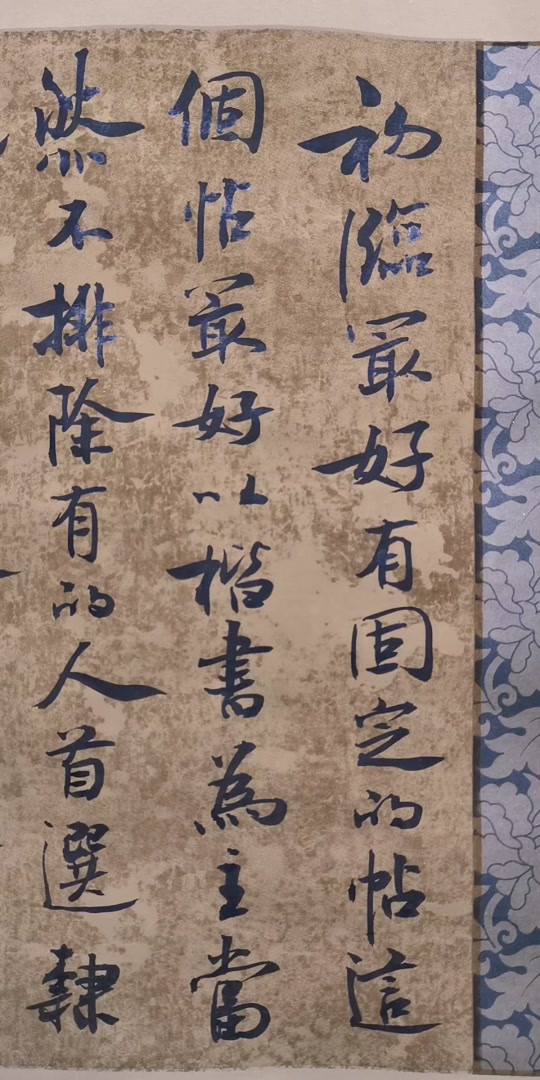 初臨最好有固定的帖這
個帖最好以楷書為主當
然不排除有的人首選隸